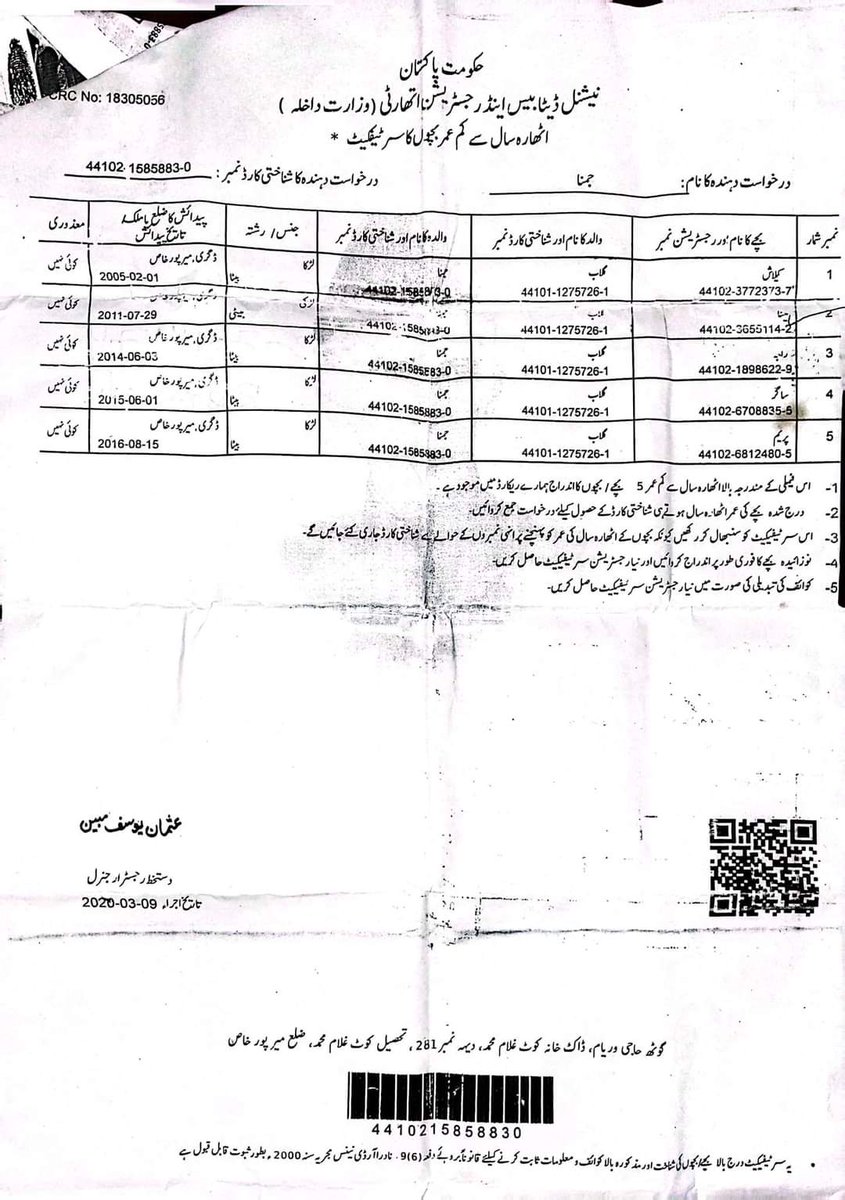 CRC No: 18305056
حکومت پاکستان
نیشنل ڈیٹا بیس اینڈ رجسٹریشن اتھارٹی (وزارت داخلہ)
اٹھارہ سال سے کم عمر بچوں کا سرٹیفکیٹ *
درخواست دہندہ کا نام: جمنا درخواست دہندہ کا شناختی کارڈ نمبر: 44102-1585883-0
نمبر شمار بچے کا نام اور رجسٹریشن نمبر والد کا نام اور شناختی کارڈ نمبر والدہ کا نام اور شناختی کارڈ نمبر جنس / رشتہ پیدائش کا ضلع یا ملک / تاریخ پیدائش معذوری
1 کیلاش گلاب جمنا لڑکا ڈگری، میرپور خاص کوئی نہیں
44102-3772373-7 44101-1275726-1 44102-1585883-0 بیٹا 2005-02-01
2 گلاب جمنا لڑکی ڈگری، میرپور خاص کوئی نہیں
44102-3655114-2 44101-1275726-1 44102-1585883-0 بیٹی 2011-07-29
3 گلاب جمنا لڑکا ڈگری، میرپور خاص کوئی نہیں
44102-1898622-9 44101-1275726-1 44102-1585883-0 بیٹا 2014-06-03
4 ساگر گلاب جمنا لڑکا ڈگری، میرپور خاص کوئی نہیں
44102-6708835-5 44101-1275726-1 44102-1585883-0 بیٹا 2015-06-01
5 پریم گلاب جمنا لڑکا ڈگری، میرپور خاص کوئی نہیں
44102-6812480-5 44101-1275726-1 44102-1585883-0 بیٹا 2016-08-15
1- اس فیملی کے مندرجہ بالا اٹھارہ سال سے کم عمر 5 بچے / بچوں کا اندراج ہمارے ریکارڈ میں موجود ہے۔
2- درج شدہ بچے کی عمر اٹھارہ سال ہوتے ہی شناختی کارڈ کے حصول کیلئے درخواست جمع کروائیں۔
3- اس سرٹیفکیٹ کو سنبھال کر رکھیں کیونکہ بچوں کے اٹھارہ سال کی عمر کو پہنچنے پر انہی نمبروں کے حوالے سے شناختی کارڈ جاری کئے جائیں گے۔
4- نوزائیدہ بچے کا فوری طور پر اندراج کروائیں اور نیا رجسٹریشن سرٹیفکیٹ حاصل کریں۔
5- کوائف کی تبدیلی کی صورت میں نیا رجسٹریشن سرٹیفکیٹ حاصل کریں۔
عثمان یوسف مبین
دستخط رجسٹرار جنرل
تاریخ اجراء 2020-03-09
گوٹھ حاجی وریام، ڈاک خانہ کوٹ غلام محمد، دیہہ نمبر 281، تحصیل کوٹ غلام محمد، ضلع میرپور خاص
4410215858830
• یہ سرٹیفکیٹ درج بالا بچے/بچوں کی شناخت اور مذکورہ بالا کوائف و معلومات ثابت کرنے کیلئے قانوناً بروئے دفعہ (6)9۔ نادرا آرڈی نینس مجریہ سنہ 2000ء بطور ثبوت قابل قبول ہے